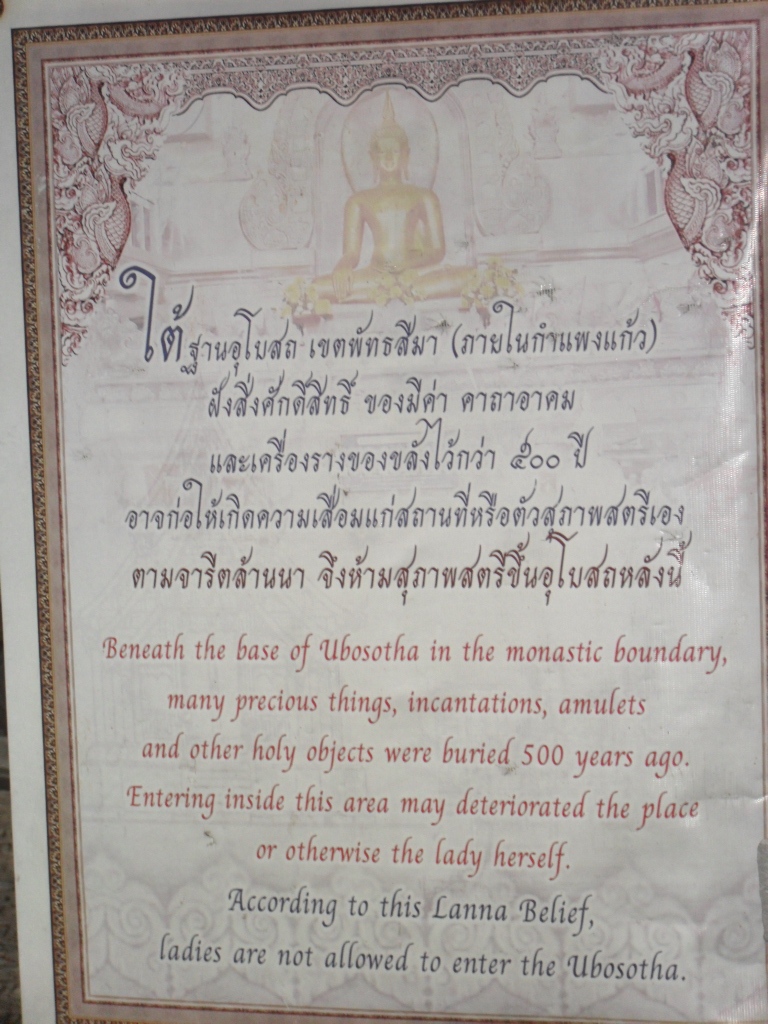 ใต้ฐานอุโบสถ เขตพัทธสีมา (ภายในกำแพงแก้ว)
ฝังสิ่งศักดิ์สิทธิ์ ของมีค่า คาถาอาคม
และเครื่องรางของขลังไว้กว่า ๕๐๐ ปี
อาจก่อให้เกิดความเสื่อมแก่สถานที่หรือตัวสุภาพสตรีเอง
ตามจารีตล้านนา จึงห้ามสุภาพสตรีขึ้นอุโบสถหลังนี้
Beneath the base of Ubosotha in the monastic boundary,
many precious things, incantations, amulets
and other holy objects were buried 500 years ago.
Entering inside this area may deteriorated the place
or otherwise the lady herself.
According to this Lanna Belief,
ladies are not allowed to enter the Ubosotha.